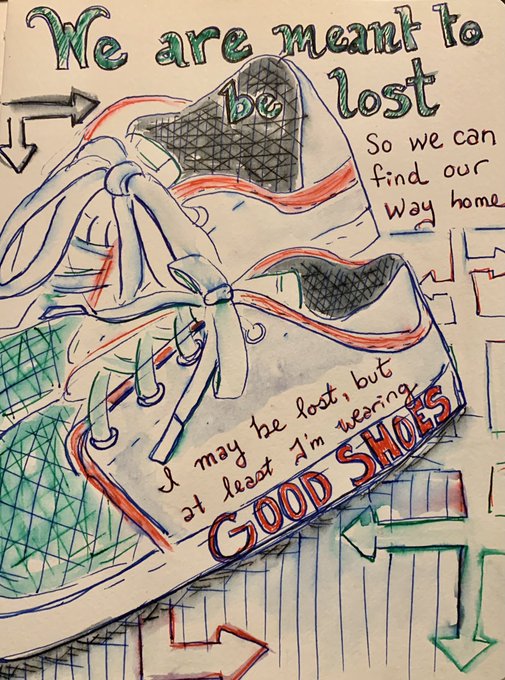 We are meant to
be lost
So we can
find our
way home
I may be lost, but
at least I'm wearing
GOOD SHOES